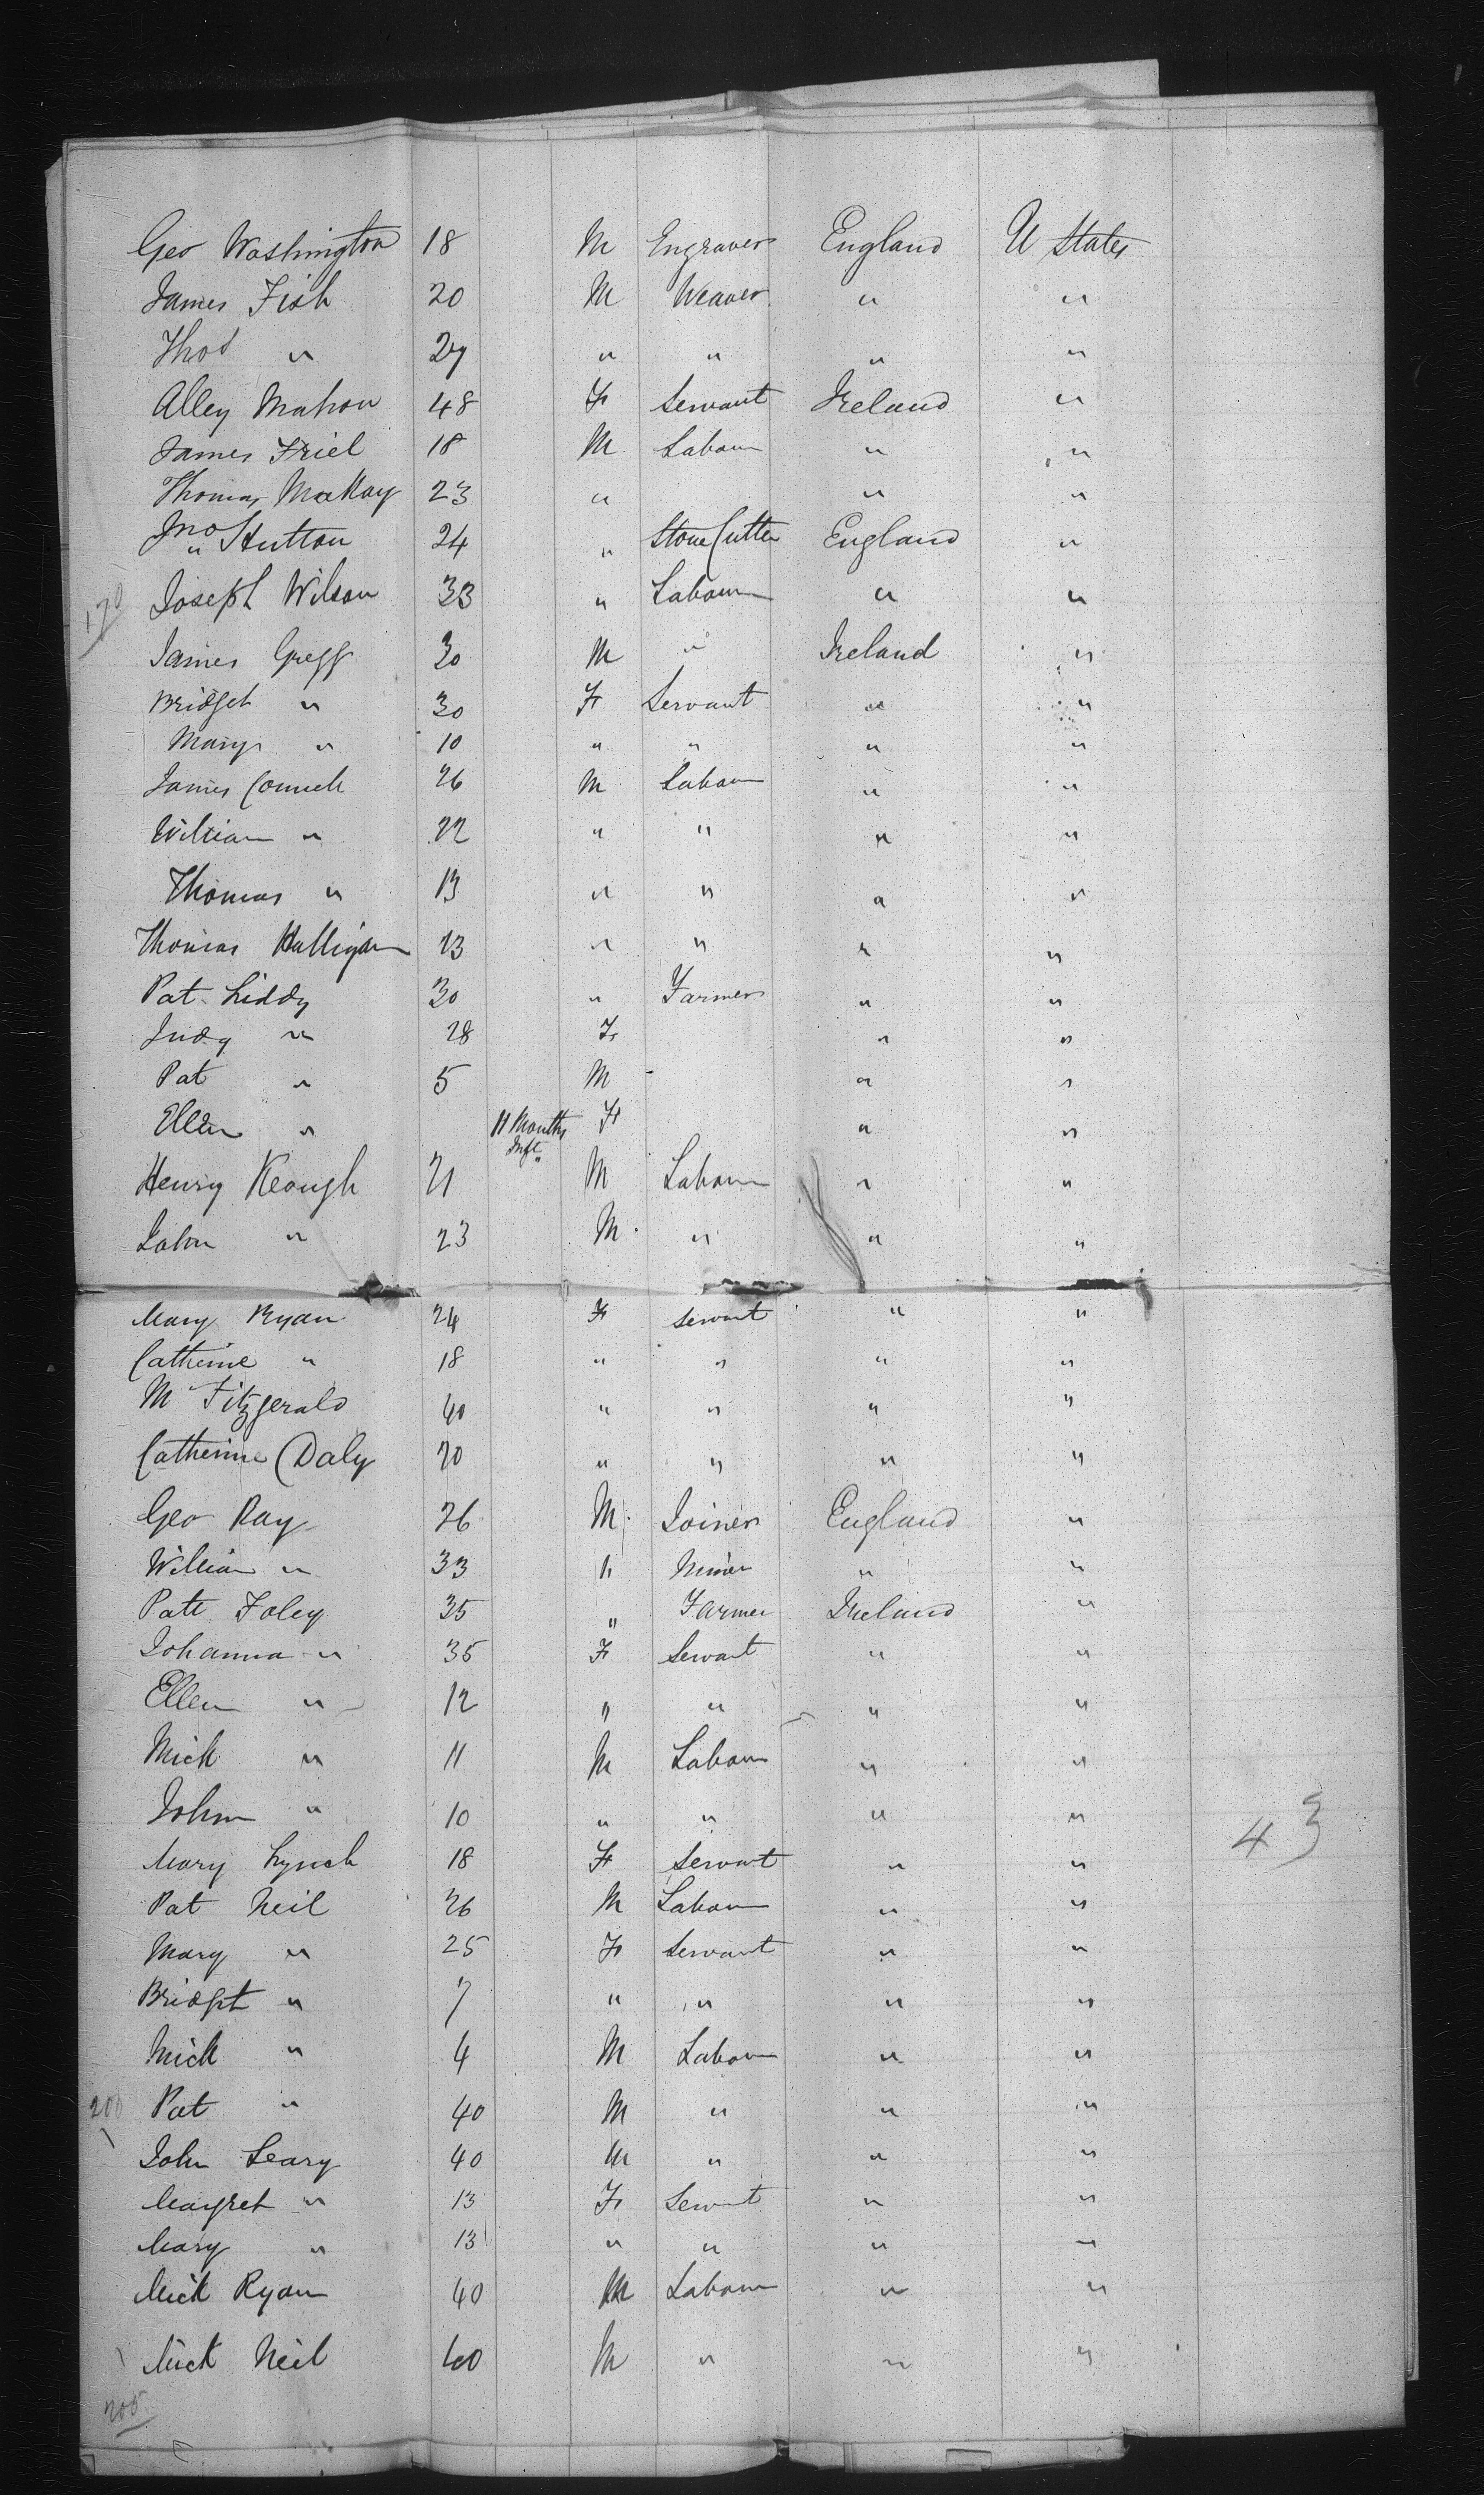 Geo Washington 18 M Engraver England U States
James Fish 20 M Weaver " "
Thos " 27 " " " "
Alley Mahon 48 F Servant Ireland "
James Friel 18 M Labour " "
Thomas McKay 23 " " "
Jno " Hutton 24 " Stone Cutter England "
170
Joseph Wilson 33 " Labour " "
James Gregg 30 M " Ireland "
Bridget " 30 F Servant " "
Mary " 10 " " " "
James 26 M Labour " "
William " 22 " " " "
Thomas " 13 " " " "
Thomas Halligan 23 " " " "
Pat Liddy 30 " Farmer " "
Judy " 28 F " "
Pat " 5 M " "
Ellen " 11 Months Inft F " "
Henry Keough 21 M Labour " "
John " 23 M " " "
Mary Ryan 24 F Servant " "
Catherine " 18 " " " "
M Fitzgerald 40 " " " "
Catherine Daly 20 " " " "
Geo Ray 26 M Joiner England "
William " 33 " Miner " "
Patt Foley 35 " Farmer Ireland "
Johanna " 35 F Servant " "
Ellen " 12 " " " "
Mick " 11 M Labour " "
John " 10 " " " "
43
Mary Lynch 18 F Servant " "
Pat Neil 26 M Labour " "
Mary " 25 F Servant " "
Bridget " 7 " " " "
Mick " 4 M Labour " "
200 Pat " 40 M " " "
John Leary 40 M " " "
Margret " 13 F Servant " "
Mary " 13 " " " "
Mick Ryan 40 M Labour " "
Mick Neil 40 M " " "
205